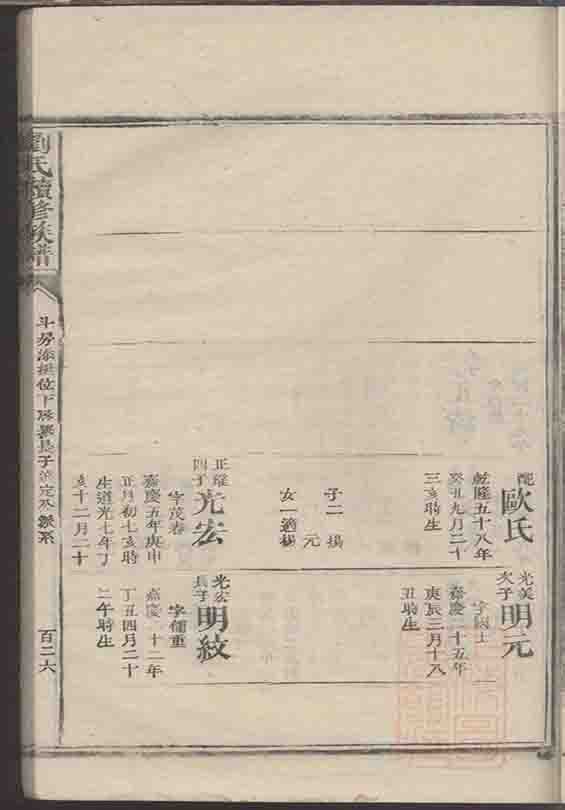 劉氏續修族譜
百二六
配
歐氏
乾隆五十八年
癸丑九月二十
三亥時生
子二 楊
元
女一適楊
正璀
四子
光宏
字茂春
嘉慶五年庚申
正月初七亥時
生道光七年丁
亥十二月二十
光美
次子
明元
字國士
嘉慶二十五年
庚辰三月十八
丑時生
光宏
長子
明紋
字補重
嘉慶二十二年
丁丑四月二十
二午時生